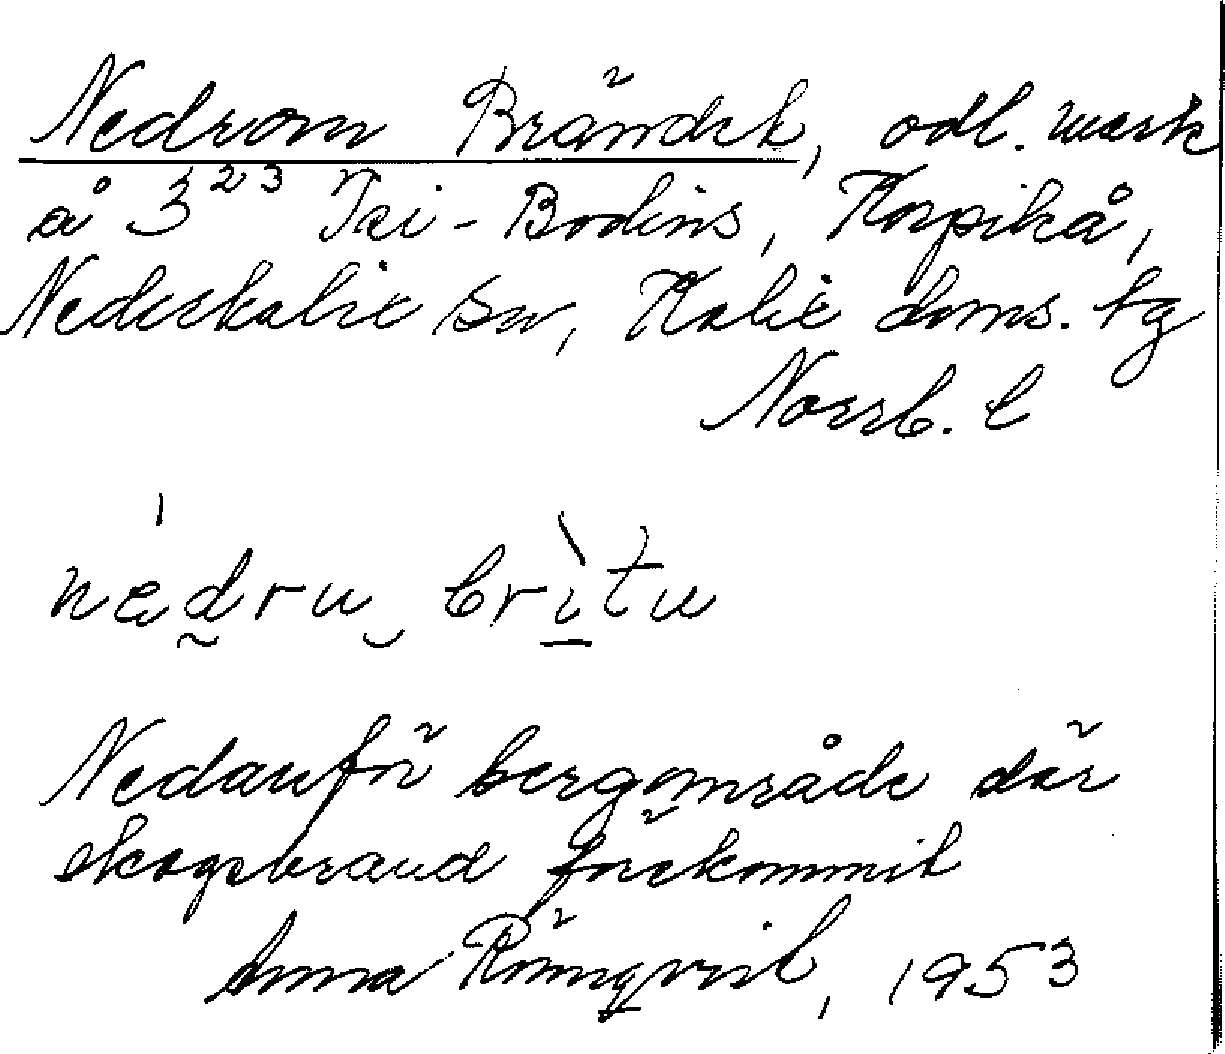 Nedrom Brändet, odl. mark
å 3²³ Isi-Bodins, Korpikå,
Nederkalix sn, Kalix doms. tg
Norrb. l
nédru britu
Nedanför bergområde där
skogsbrand förekommit
Anna Rönnqvist, 1953